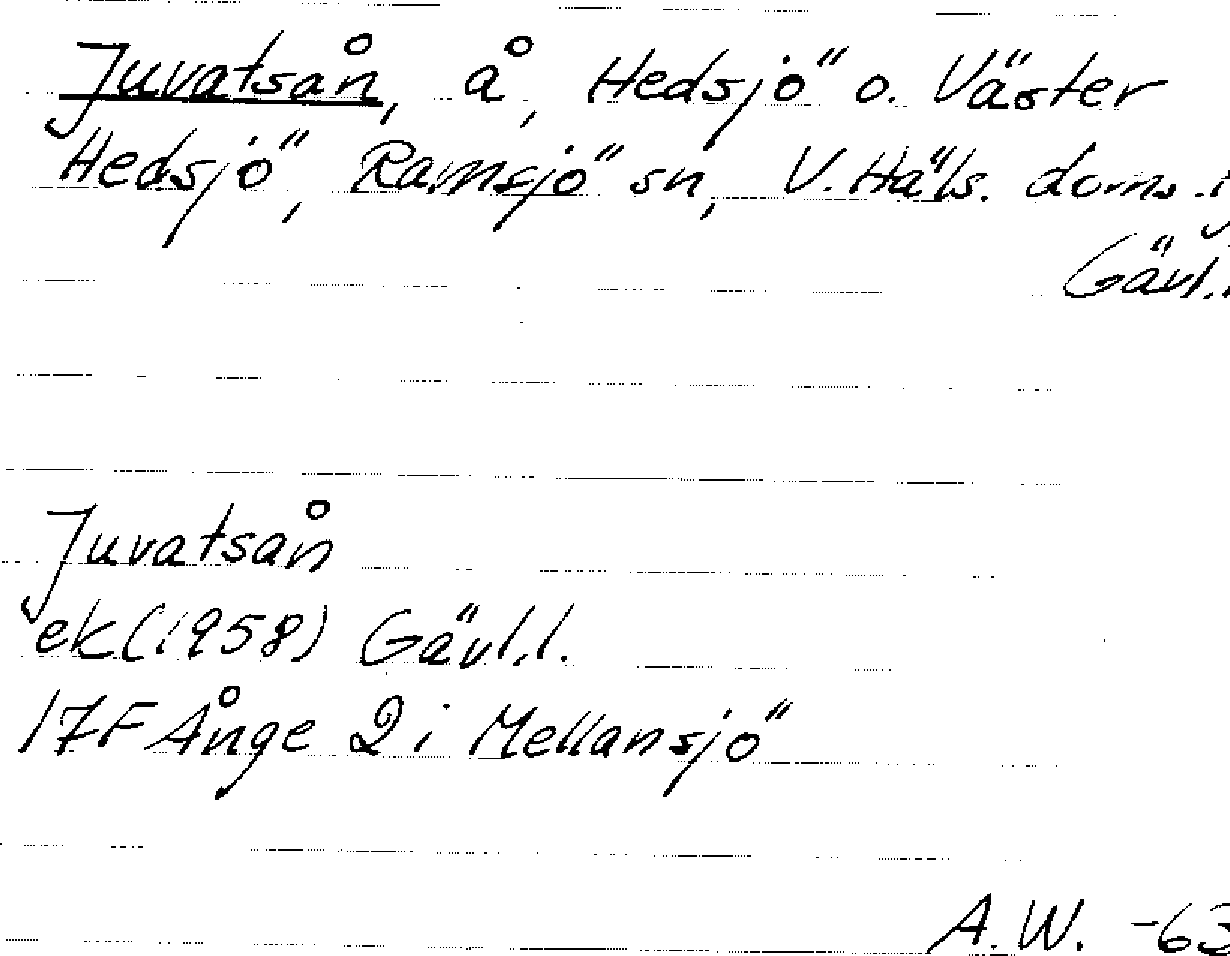 Juvatsån, å, Hedsjö o. Väster
Hedsjö, Ramsjö sn, V. Häls. doms. i
Gävl.
Juvatsån
ek (1958) Gävl.l.
17F Ånge 2 i Mellansjö
A.W. -63